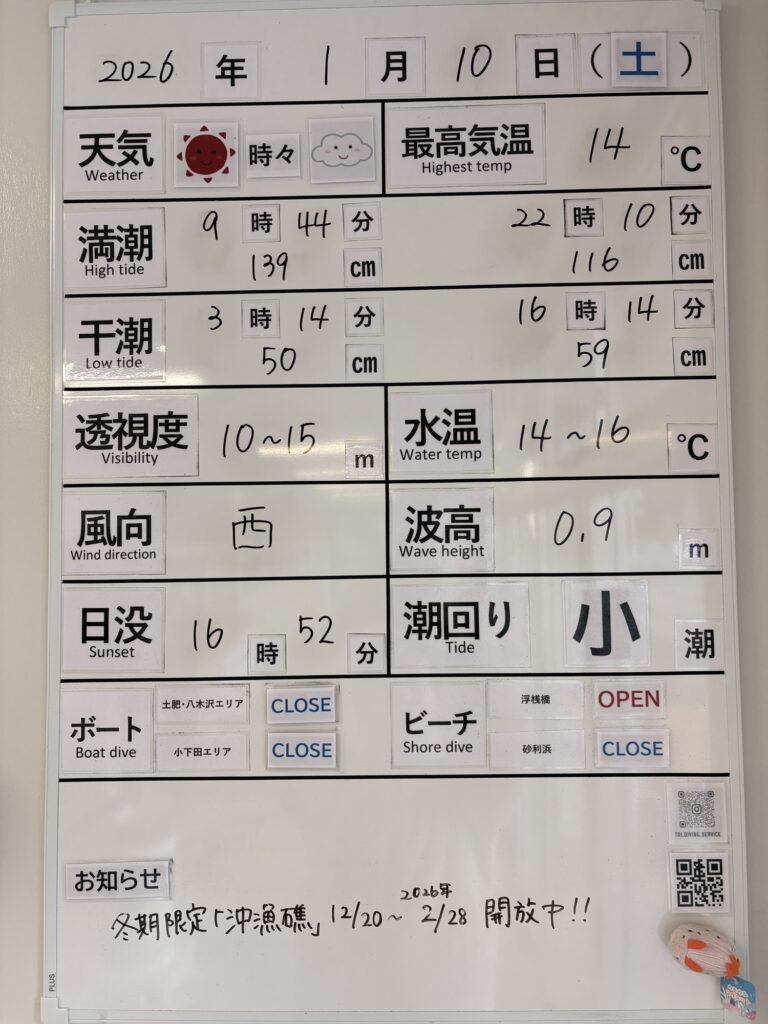 2026 年 1 月 10 日 (土)
天気 Weather 時々 最高気温 Highest temp 14 ℃
満潮 High tide 9 時 44 分 139 cm 22 時 10 分 116 cm
干潮 Low tide 3 時 14 分 50 cm 16 時 14 分 59 cm
透視度 Visibility 10~15 m 水温 Water temp 14~16 ℃
風向 Wind direction 西 波高 Wave height 0.9 m
日没 Sunset 16 時 52 分 潮回り Tide 小 潮
ボート Boat dive 土肥・八木沢エリア CLOSE ビーチ Shore dive 浮桟橋 OPEN
小下田エリア CLOSE 砂利浜 CLOSE
TOI_DIVING_SERVICE
お知らせ
2026年
冬期限定「沖漁礁」12/20~2/28 開放中!!
PLUS